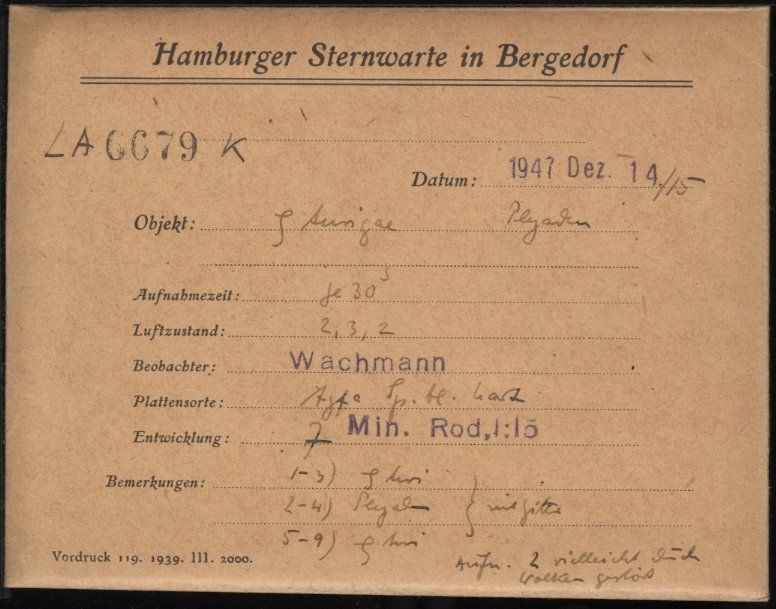 Hamburger Sternwarte in Bergedorf
LA 6679 K
Datum: 1947 Dez. 14./15
Objekt: ζ Aurigae Plejaden
Aufnahmezeit: je 30ˢ
Luftzustand: 2, 3, 2
Beobachter: Wachmann
Plattensorte: Agfa Sp. bl. hart
Entwicklung: 7 Min. Rod. 1:15
Bemerkungen: 1-3) ζ Auri
2-4) Plejaden } mit Gitter
5-9) ζ Auri
Aufn. 2 vielleicht durch
Wolken gestört
Vordruck 119. 1939. III. 2000.